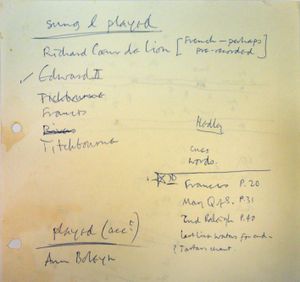 sung & played
Richard Coeur de Lion [French – perhaps
pre-recorded]
✓ Edward II
Tichbourne
Francis
Tichbourne
Hedley
cues
words.
Francis P.20
Mary Q of S. P.31
2nd Raleigh P.40
Last line waters for end –
? Tartans chant.
played (acc?)
Ann Boleyn